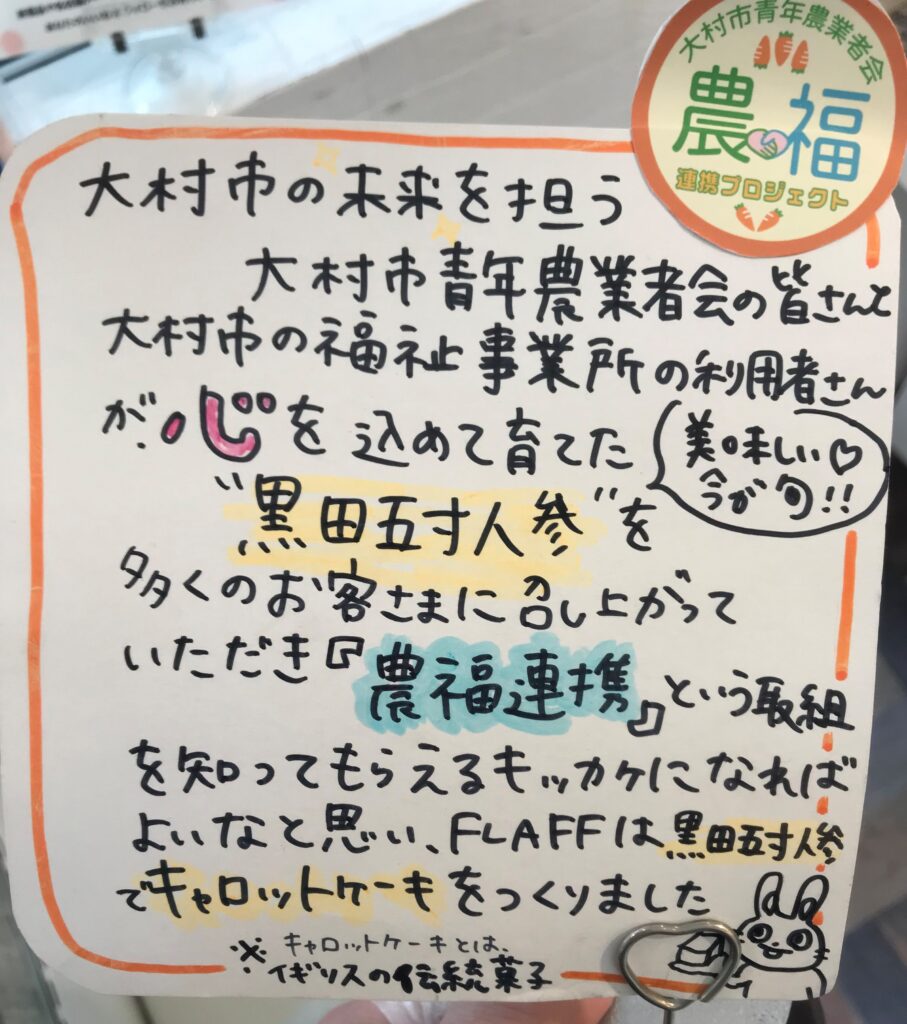 大村市青年農業者会
農福
連携プロジェクト
大村市の未来を担う
大村市青年農業者会の皆さんと
大村市の福祉事業所の利用者さん
が心を込めて育てた
美味しい♡
今が旬!!
"黒田五寸人参"を
多くのお客さまに召し上がって
いただき『農福連携』という取組
を知ってもらえるキッカケになれば
よいなと思い、FLAFFは黒田五寸人参
でキャロットケーキをつくりました
※キャロットケーキとは、
イギリスの伝統菓子